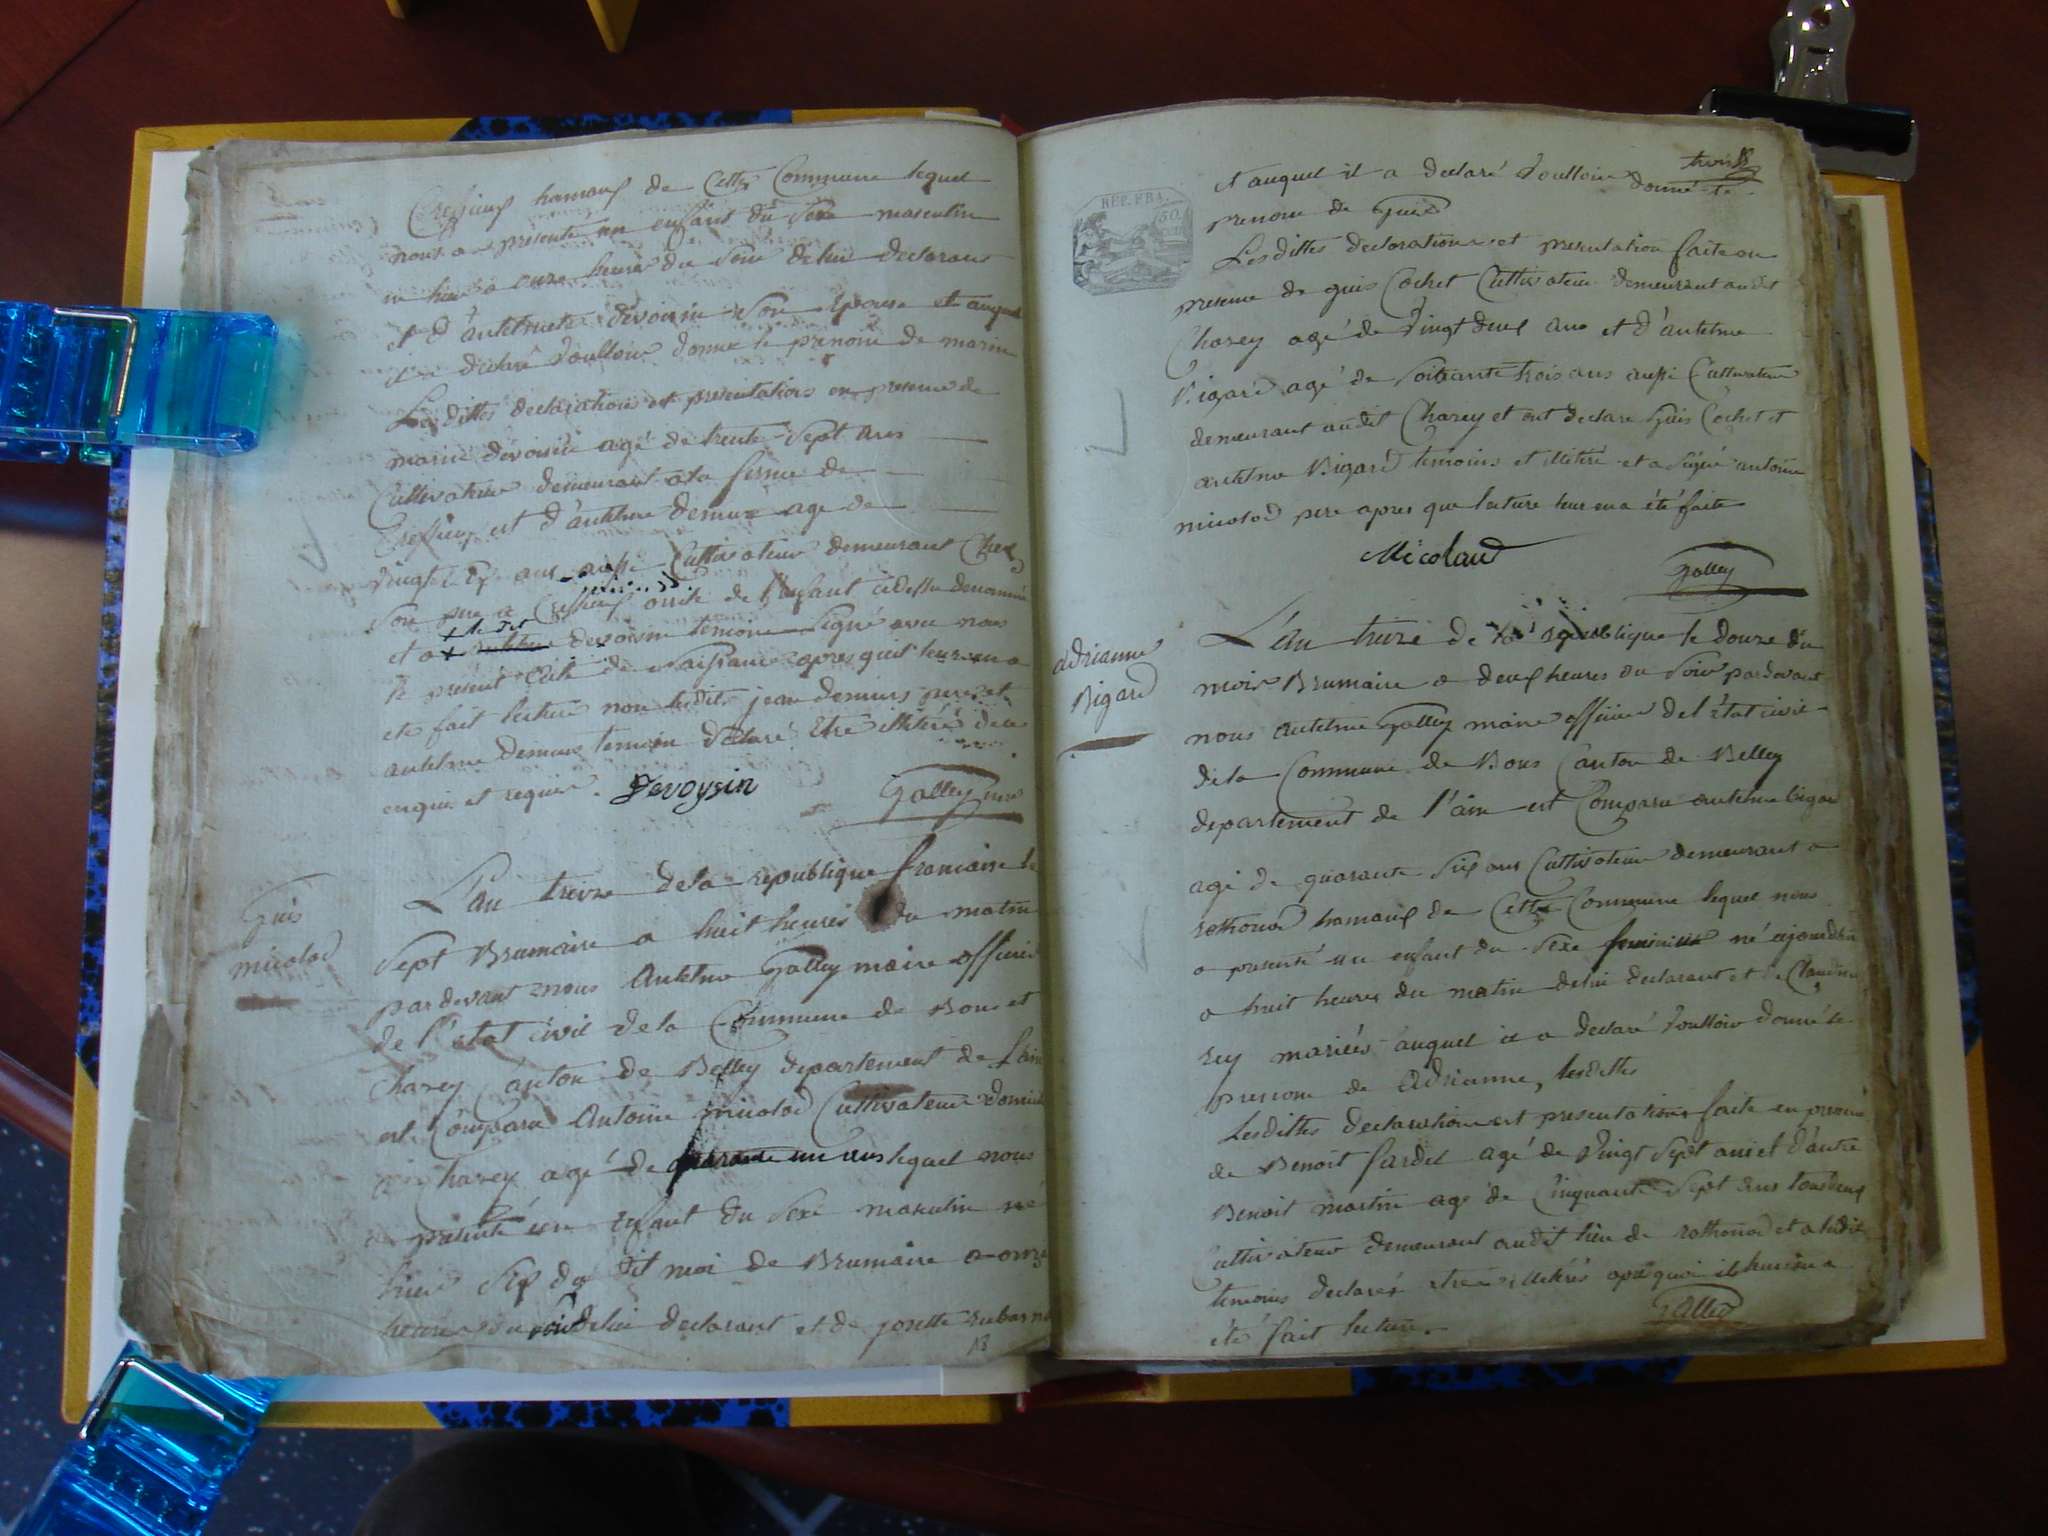 hamaux de Cette Commune lequel
nous a présenté un enfant du Sexe masculin
né hier a onze heures du Soir de lui declarant
et d'antelmete devoisin Son Epouse et auquel
il a declaré Voulloir donné le prenom de marin
Les dittes declarations et presentations en presence de
marin devoisin agé de trente Sept ans
Cultivateur demeurant a la ferme de
et d'antelme demure agé de
Vingt ans aussi Cultivateur demeurant Chez
Son pere a oncle de l'enfant cidessu denommé
+ le dit
et a devoisin temoins Signé avec nous
le present acte de naissance apres qu'il leur en a
eté fait lecture non ledit jean demurs pere et
antelme demurs temoin declaré Etre illiteré de ce
enquis et requis. Devoysin Galley mre
Guis
nicolod
L'an treize de la republique francaise le
Sept Brumaire a huit heures du matin
par devant nous Antelme Galley maire officier
de l'état civil de la Commune de Bon et
Charey Canton de Belley departement de l'ain
est Comparu Antoine nicolod Cultivateur
Charey agé de quarante un ans lequel nous
a présenté un enfant du Sexe masculin né
hier Six du dit moi de Brumaire a onze
heures du soir de lui declarant et de josette
13
trois
REP. FRA.
50
et auquel il a declaré Voulloir donné le
prenom de Guis
Les dittes declarations et presentation faite en
presence de guis Cochet Cultivateur demeurant audit
Charey agé de Vingt deux ans et d'antelme
Bigard agé de Soixante trois ans aussi Cultivateur
demeurant audit Charey et ont declare Guis Cochet et
antelme Bigard temoins et illitéré et a Signé antoine
nicolod pere apres que lecture leur en a été faite
Nicolaud
Galley
adrianne
Bigard
L'an treize de la republique le douze du
mois Brumaire a deux heures du Soir pardevant
nous antelme Galley maire officier de l'état civil
de la Commune de Bons Canton de Belley
departement de l'ain est Comparu antelme bigard
agé de quarante Six ans Cultivateur demeurant a
rothonod hamaux de Cette Commune lequel nous
a presenté un enfant du Sexe feminin né ajourdhui
a huit heures du matin de lui declarant et de Claudine
rey mariés auquel il a declaré Voulloir donné le
prenom de Adrianne, lesdittes
Lesdittes declaration et presentations faite en presence
de Benoit fardel agé de Vingt Sept ans et d'autre
Benoit martin agé de Cinquante Sept ans tous deux
Cultivateur demeurant audit lieu de rothonod et a ledit
temoins declarés etre illitérés apres quoi il leur en a
été fait lecture.
Galley